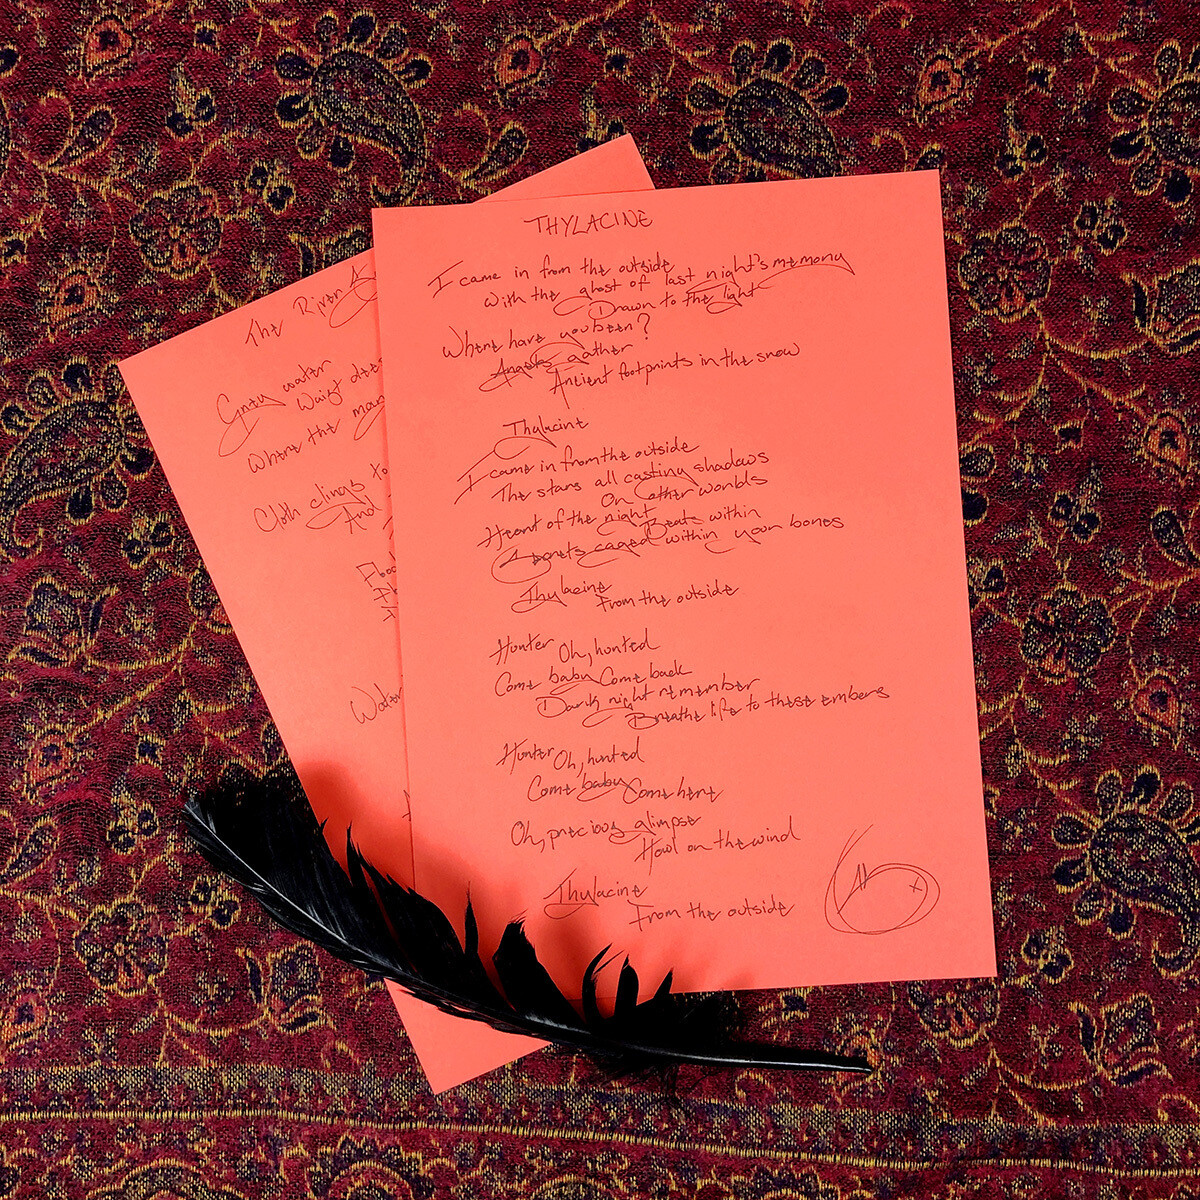 THYLACINE
I came in from the outside
With the ghost of last night's memory
Drawn to the light
Where have you been?
Angels gather
Ancient footprints in the snow
Thylacine
I came in from the outside
The stars all casting shadows
On other worlds
Heart of the night
Beats within
Secrets caged within your bones
Thylacine
From the outside
Hunter Oh, hunted
Come baby Come back
Dark night remember
Breathe life to these embers
Hunter Oh, hunted
Come baby Come here
Oh, precious glimpse
Howl on the wind
Thylacine
From the outside
The River
Grey water
Where the
Cloth clings to
And
Water